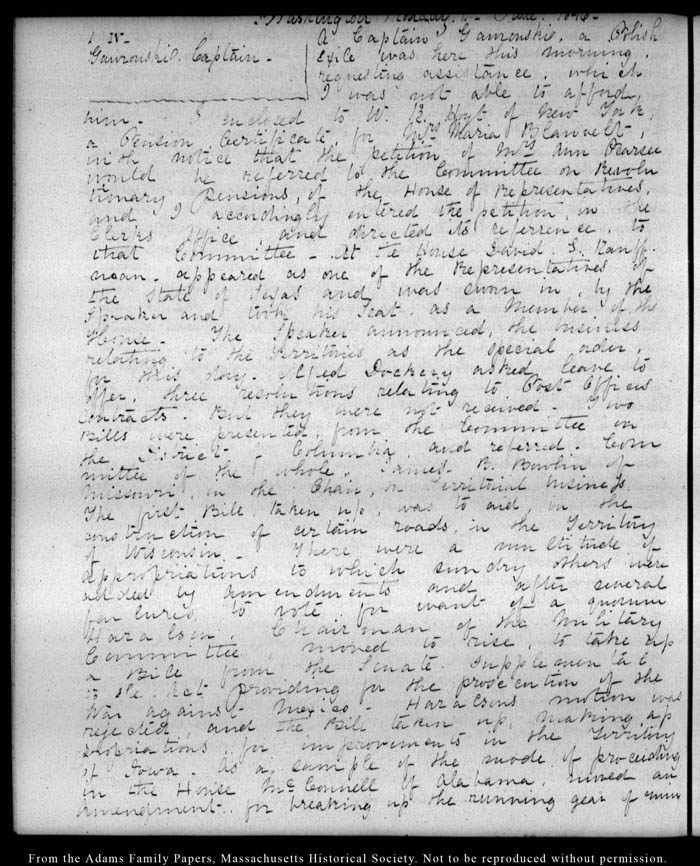 Washington Monday 1. June. 1846.
1. IV.
Gawronski. Captain.
A Captain Gawronski, a Polish
exile was here this morning,
requesting assistance, which
I was not able to afford
him. I enclosed to W. B. Hoyt of New York,
a Pension Certificate, for Mrs. Maria Blauvelt,
with notice that the petition of Mrs Ann Pearsee
would be referred to the Committee on Revolu
tionary Pensions, of the House of Representatives,
and I accordingly entered the petition, in the
Clerks Office, and directed its referrence, to
that Committee. At the House David S. Kauff-
man. appeared as one of the Representatives of
the State of Texas and was sworn in, by the
Speaker and took his Seat, as a Member of the
House. The Speaker announced, the business
relating to the Territories as the special order,
for this day. Alfred Dockery asked leave to
offer, three resolutions relating to Post Offices
Contracts. But they were not received. Two
Bills were presented, from the Committee on
the District of Columbia, and referred. Com
mittee of the whole, James. B. Bowlin of
Missouri, in the Chair, on Territorial business,
The first Bill, taken up, was to aid, in the
construction of certain roads, in the Territory
of Wisconsin. There were a multitude of
appropriations to which sundry others were
added by amendments and after several
failures, to vote, for want of a quorum
Haralson, Chairman of the Military
Committee, moved to rise, to take up
a Bill from the Senate. Supplemental
to the Act providing for the prosecution of the
War against Mexico. Haralsons motion was
rejected, and the Bill taken up, making ap
propriations, for improvements in the Territory
of Iowa. As a sample of the mode of proceeding
in the House McConnell of Alabama, moved an
amendment, for breaking up the running gear of
From the Adams Family Papers, Massachusetts Historical Society. Not to be reproduced without permission.